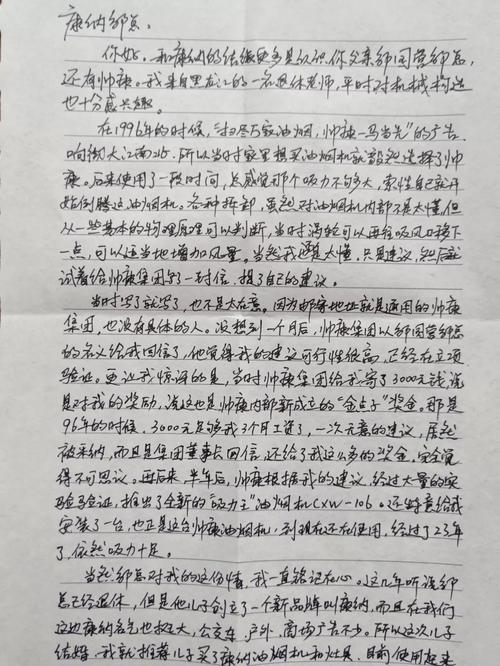 康纳邹总：
你好，和康纳的结缘更多是认识你父亲邹国营邹总，
还有帅康。我来自黑龙江的一名退休老师，平时对机械构造
也十分感兴趣。
在1996年的时候，“扫尽万家油烟，帅康一马当先”的广告
响彻大江南北，所以当时家里想买油烟机就毅然选择了帅
康。后来使用了一段时间，总感觉那个吸力不够大，索性自己就开
始倒腾这油烟机。各种拆卸，虽然对油烟机内部不是太懂但
从一些基本的物理原理可以判断，当时涡轮可以再往吸风口移下
一点，可以适当地增加风量。当然我也是太懂，只是建议，然后就
试着给帅康集团写了一封信，提了自己的建议。
当时写了就写了，也不是太在意。因为邮寄地址就是通用的帅康
集团，也没有具体的人。没想到一个月后，帅康集团以邹国营邹总
的名义给我回信了，他觉得我的建议可行性很高，正经在立项
验证。更让我惊讶的是，当时帅康集团给我寄了3000元钱，说
是对我的奖励，说这也是帅康内部新成立的“金点子”奖金。那是
96年的时候，3000元足够我3个月工资了，一次无意的建议，居然
被采纳，而且是集团董事长回信，还给了我这么多的奖金，完全觉
得不可思议。再后来，半年后，帅康根据我的建议，经过大量的实
验验证，推出了全新的“吸力王”油烟机CXW-106。还特意给我
安装了一台，也正是这台帅康油烟机，到现在还在使用，经过了23年
了，依然吸力十足。
当然邹总对我的这份情，我一直铭记在心。这几年听说邹
总已经退休，但是他儿子创立了一个新品牌叫康纳，而且在我们
这边康纳名气也挺大，公交车、户外、商场广告不少。所以这次儿子
结婚，我就推荐儿子买了康纳油烟机和灶具，目前使用起来